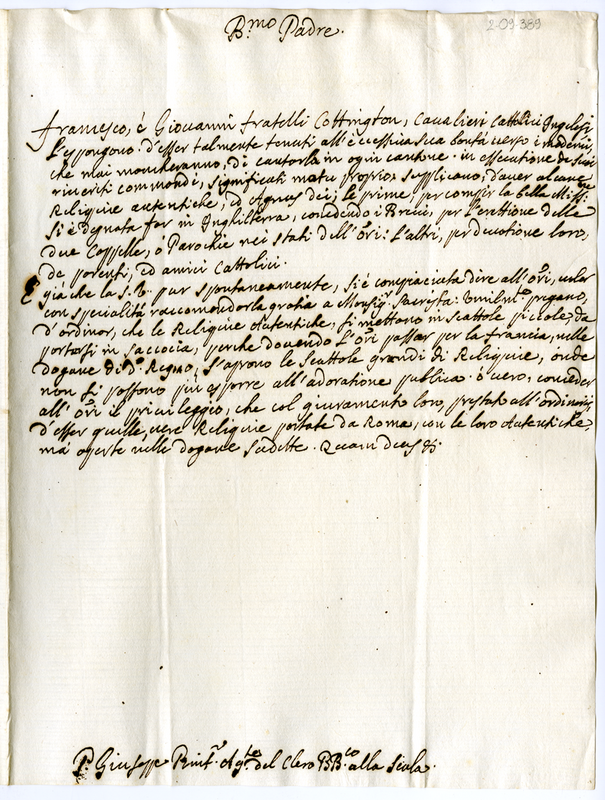 B.mo Padre.
2-09 389
Francesco, è Giovanni fratelli Cottington, Cavalieri Cattolici Inglesi
l'espongono d'esser talmente tenuti all'eccessiva sua bontà verso i medemi,
che mai mancheranno, di cantarla in ogni cantone. in essecutione de suoi
riveriti commandi, significati motu proprio, supplicano, d'aver alcune
Reliquie autentiche, ed Agnus dei; le prime, per compir la bella Miss.ne
si è degnata far in Inghilterra, concedendo i Brevi, per l'erettione delle
due Cappelle, ò Parochie nei stati dell'Ori: l'altri, per divotione loro,
de parenti, ed amici Cattolici.
E già che la S.V. pur spontaneamente, si è compiaciuta dire all'ori, voler
con specialità raccomandar la gratia a Monsig.r Sacrista: umilm.te pregano,
d'ordinar, che le Reliquie Autentiche, si mettano in scattole picciole, da
portarsi in saccoccia, perche dovendo l'Ori passar per la francia, nelle
dogane di d.o Regno, s'aprono le scattole grandi di Reliquie, onde
non si possono più esporre all'adoratione publica. ò vero, conceder
all'ori il privilleggio, che col giuramento loro, prestato all'ordinarij,
d'esser quelle, vere Reliquie portate da Roma, con le loro Autentiche
ma aperte nelle dogane sudette. Quam Deus &.
P. Giuseppe Agte. del Clero alla Scala.